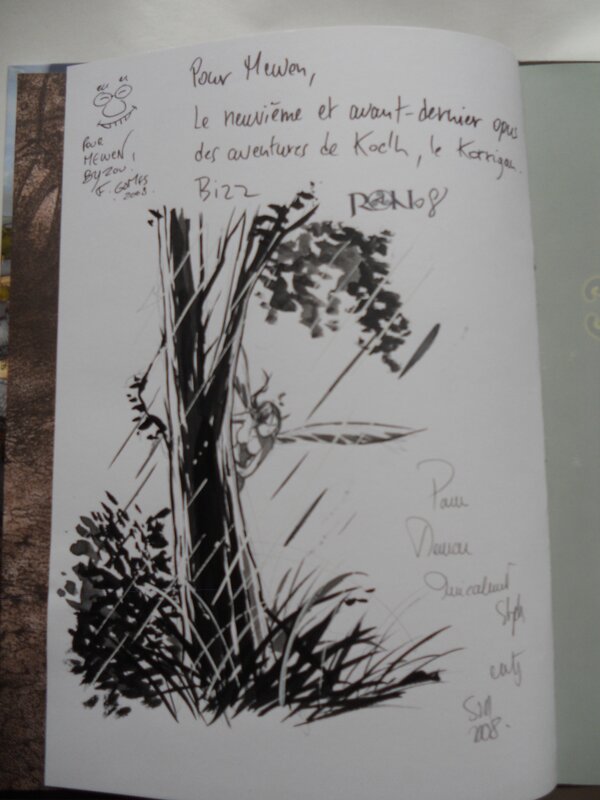 Pour Mewen,
Le neuvième et avant-dernier opus
des aventures de Kodh, le Korrigan.
Bizz
RON 08
POUR
MEWEN,
F. GOMES
2008.
Pour
Amicalement
Steph
SM
2008.